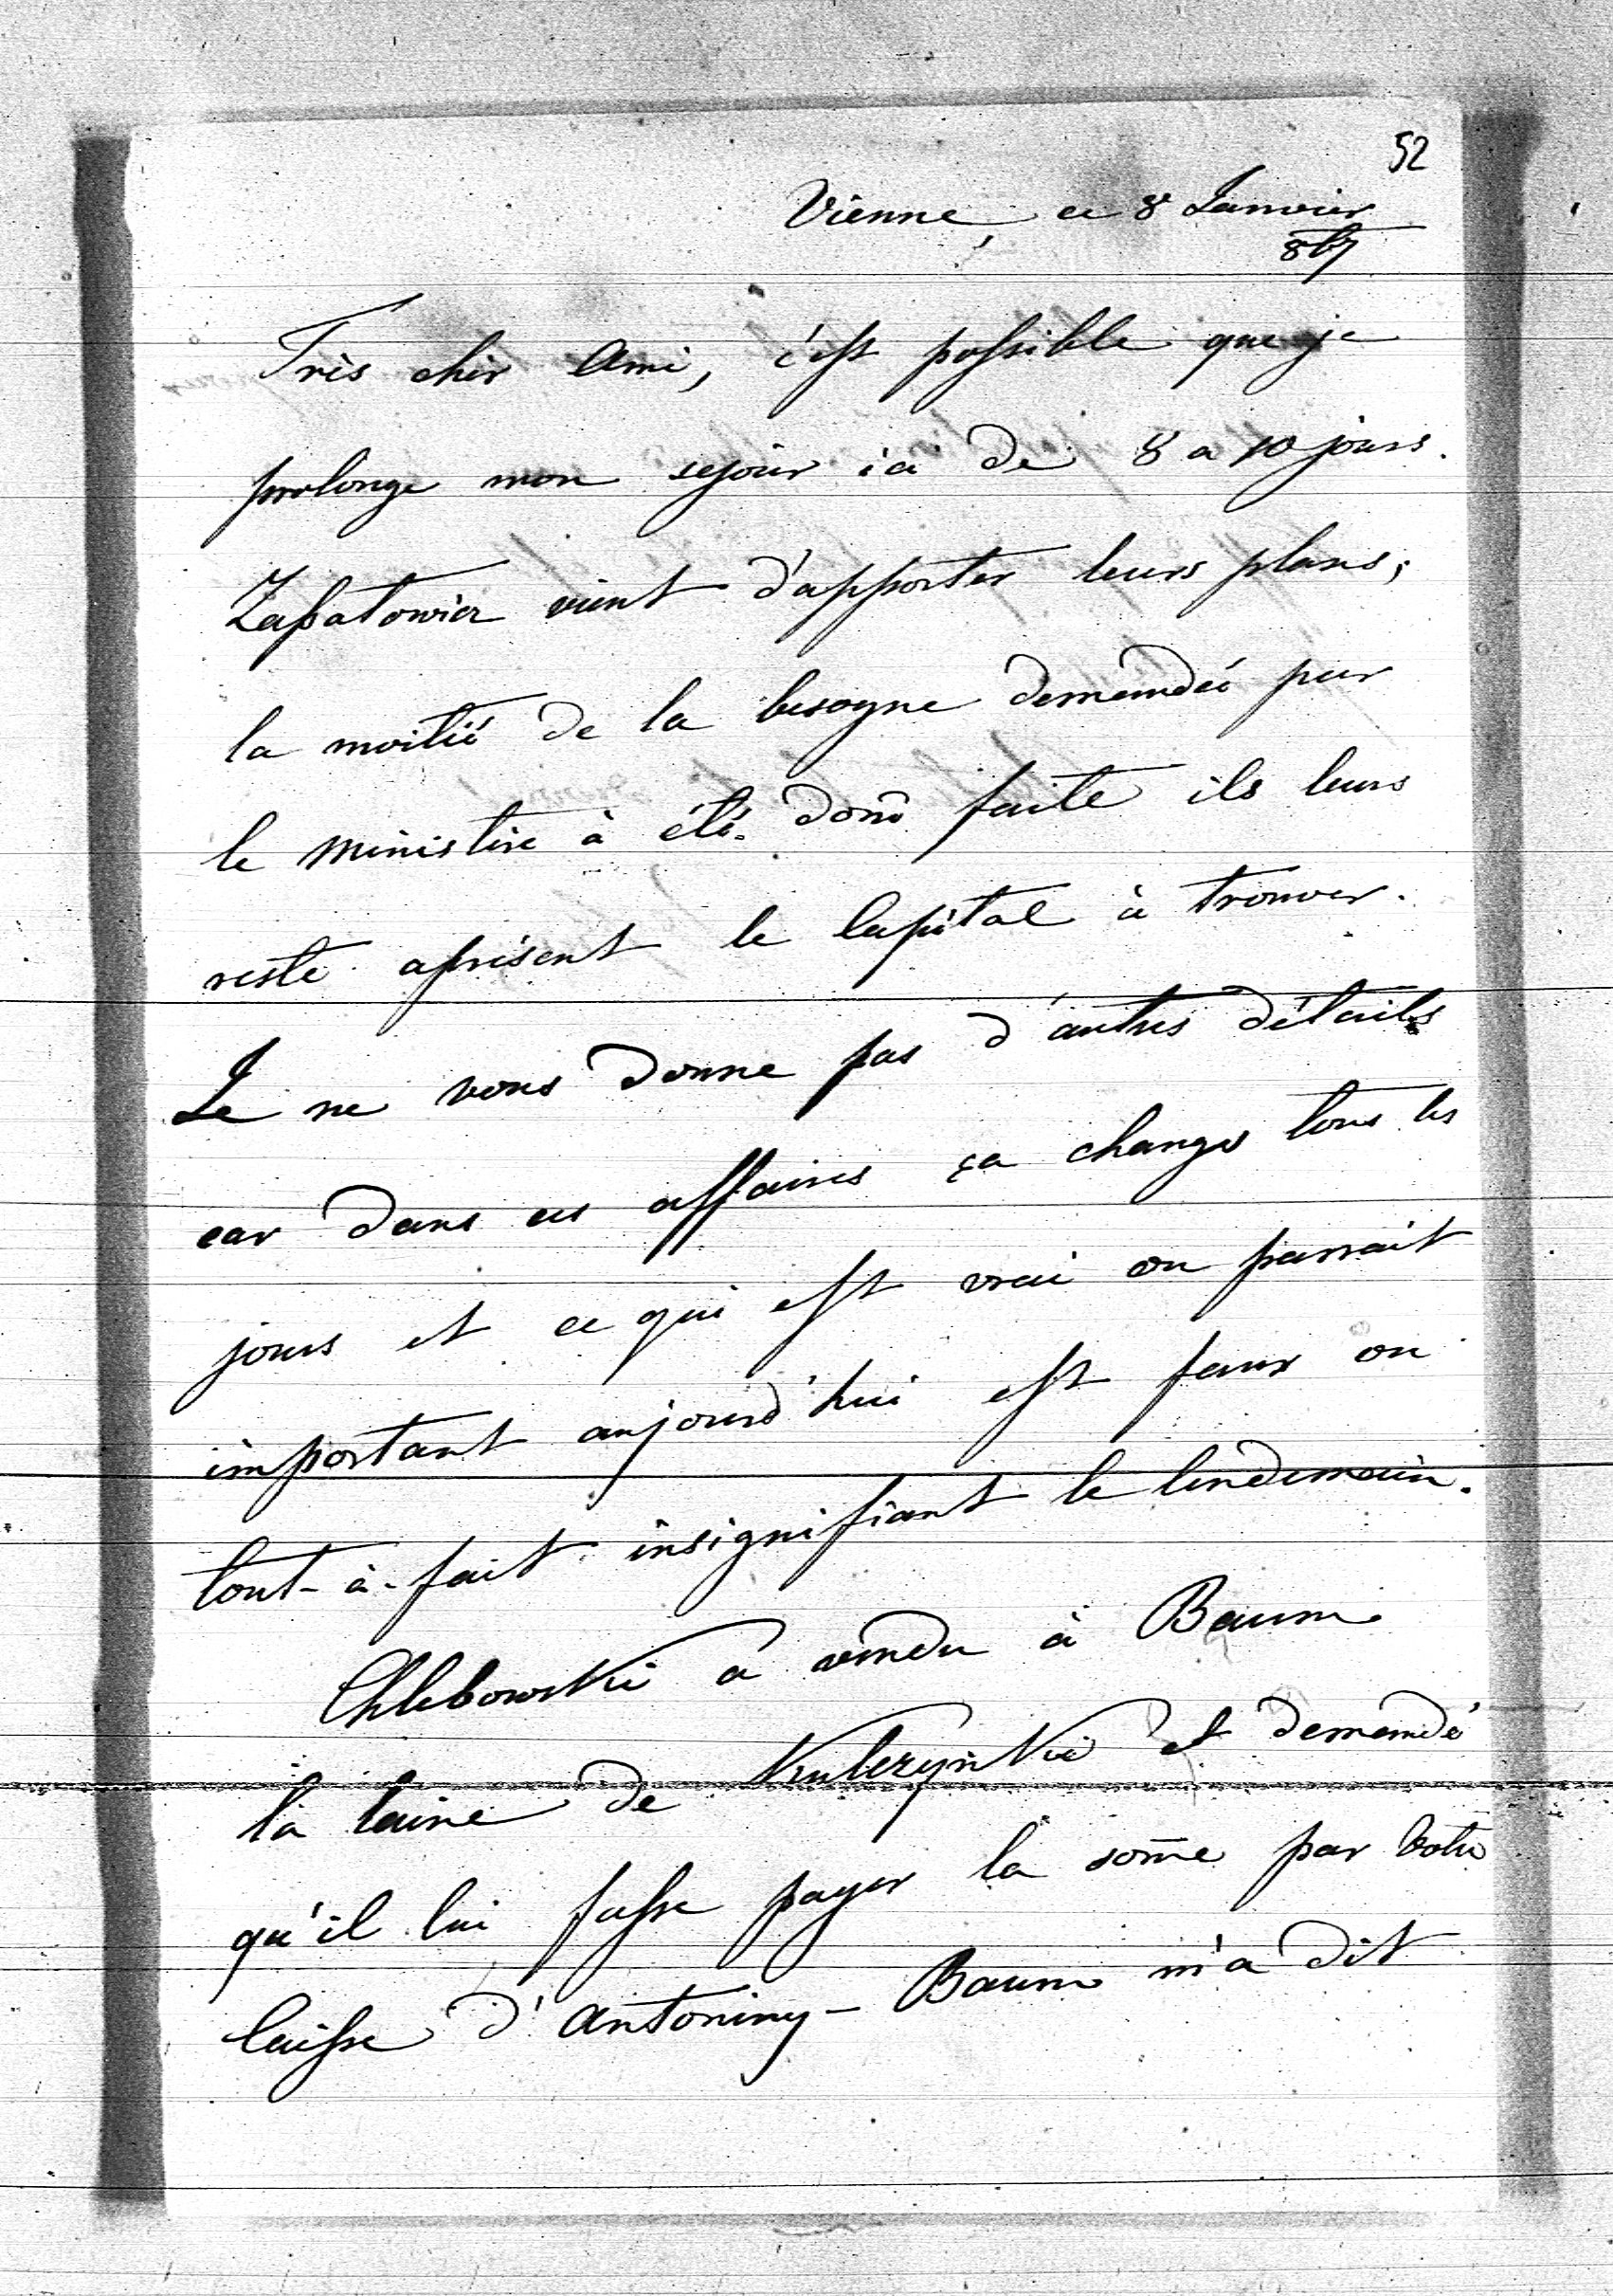 52
Vienne, ce 8 Janvier
867
Très chèr Ami, c'est possible que je
prolonge mon sejour ici de 8 a 10 jours.
Zapatowicz vient d'apporter leurs plans;
la moitié de la besogne demandée par
le ministère à été donc faite ils leurs
reste aprèsent le Capital à trouver.
Je ne vous donne pas d'autres détails
car dans ces affaires ça change tous les
jours et ce qui est vrai ou parrait
important aujourd'hui est faux ou
tout-à-fait insignifiant le lendemain.
Chlebowski a vendu à Baum
la laine de Kulczynki et demandé
qu'il lui fasse payer la some par Votre
Caisse d'Antoniny - Baum m'a dit